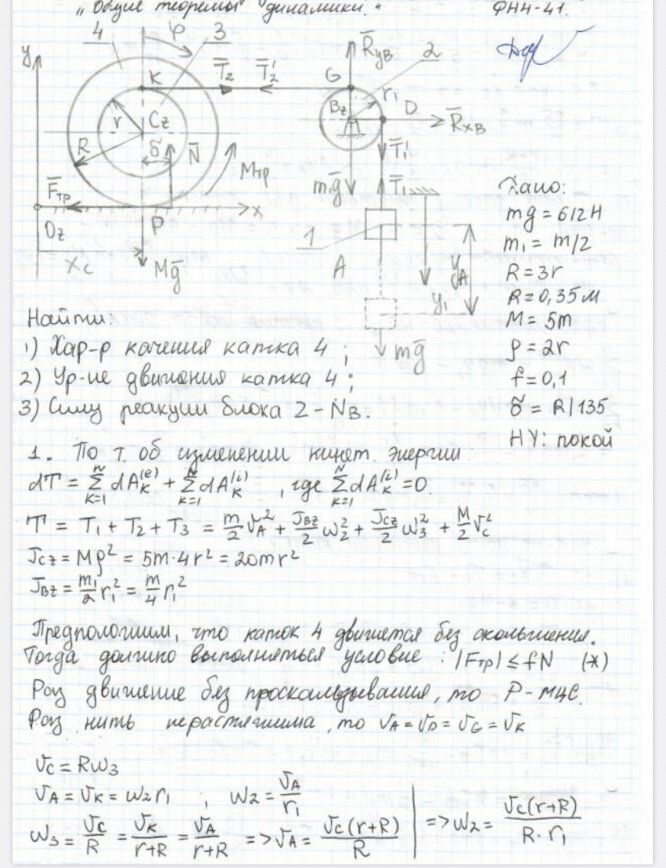 „Общие теоремы динамики."
ФН4-41.
4 φ 3 R̄yB 2
y K T̄2 T̄2' G r1
r Cz Bz D R̄xB
R δ N̄ Mтр T̄1'
F̄тр m1ḡ T̄1
Oz P x 1
xc Mḡ A yA y1
mḡ
Дано:
mg = 612 Н
m1 = m/2
R = 3r
R = 0,35 м
M = 5m
ρ = 2r
f = 0,1
δ = R/135
НУ: покой
Найти:
1) Хар-р качения катка 4 ;
2) Ур-ие движения катка 4 ;
3) Силу реакции блока 2 - NB.
1. По т. об изменении кинет. энергии:
dT = Σ(k=1..N) dAk(e) + Σ(k=1..N) dAk(i) , где Σ(k=1..N) dAk(i) = 0.
T = T1 + T2 + T3 = m/2 vA² + JBz/2 ω2² + JCz/2 ω3² + M/2 vc²
JCz = Mρ² = 5m·4r² = 20mr²
JBz = m1/2 r1² = m/4 r1²
Предположим, что каток 4 движется без скольжения.
Тогда должно выполняться условие : |Fтр| ≤ fN (*)
Раз движение без проскальзывания, то P - МЦС.
Раз нить нерастяжима, то vA = vD = vG = vK
vC = Rω3
vA = vK = ω2r1 ; ω2 = vA/r1
ω3 = vC/R = vK/(r+R) = vA/(r+R) => vA = vC(r+R)/R => ω2 = vC(r+R)/(R·r1)